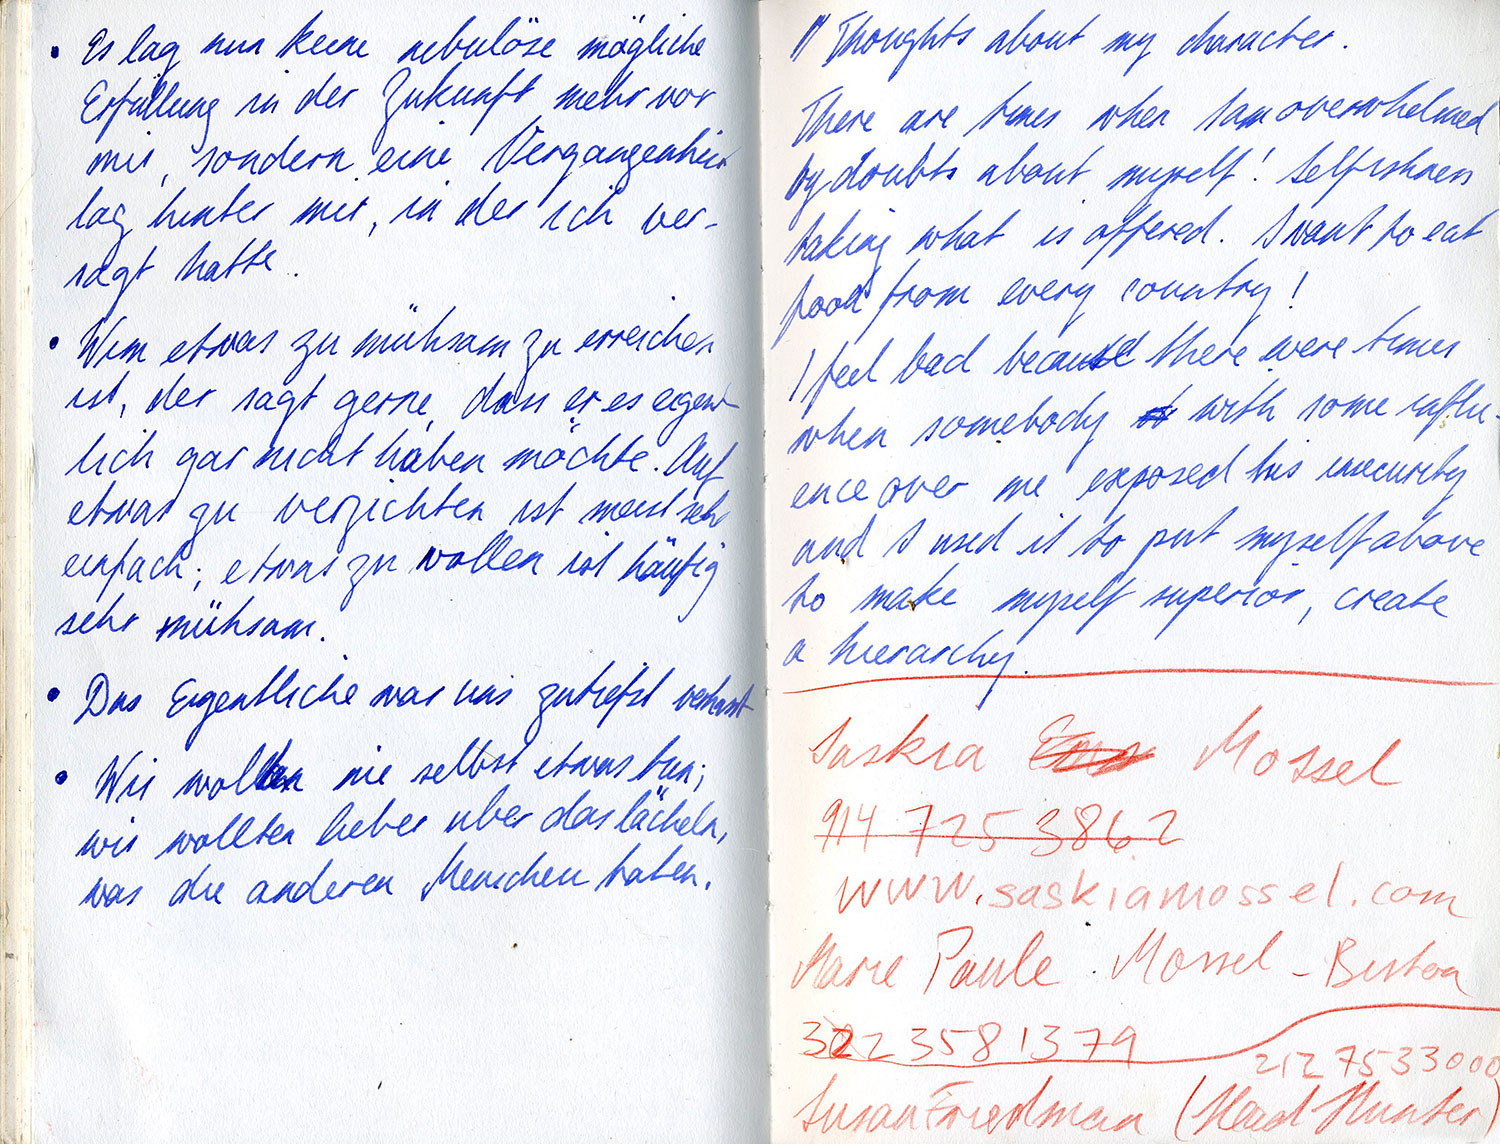 • Es lag nun keine nebulöse mögliche
Erfüllung in der Zukunft mehr vor
mir, sondern eine Vergangenheit
lag hinter mir, in der ich ver-
sagt hatte.
• Wem etwas zu mühsam zu erreichen
ist, der sagt gerne, dass er es eigent-
lich gar nicht haben möchte. Auf
etwas zu verzichten ist meist sehr
einfach; etwas zu wollen ist häufig
sehr mühsam.
• Das Eigentliche war uns zutiefst verhasst
• Wir wollten nie selbst etwas tun;
wir wollten lieber über das lächeln,
was die anderen Menschen haben.
Thoughts about my character.
There are times when I am overwhelmed
by doubts about myself! Selfishness
taking what is offered. I want to eat
food from every country!
I feel bad because there were times
when somebody with some influ-
ence over me exposed his insecurity
and I used it to put myself above
to make myself superior, create
a hierarchy.
Saskia Mossel
914 725 3862
www.saskiamossel.com
Marie Paule Mossel -
322 358 1379
212 753 3000
Susan Friedman (Head Hunter)